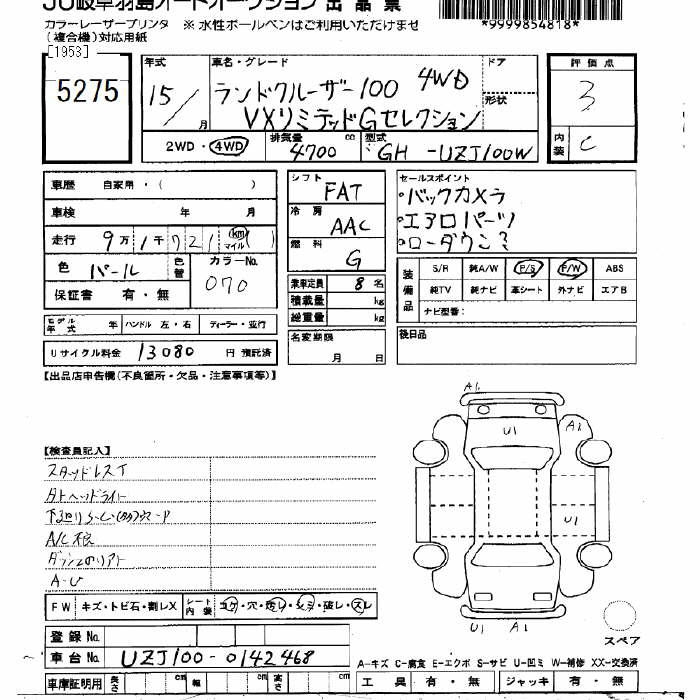 JU岐阜羽島オートオークション 出品票
カラーレーザープリンタ ※ 水性ボールペンはご利用いただけませ
(複合機)対応用紙
*9999854818*
[1953]
5275
年式 車名・グレード ドア 評価点
15/月 ランドクルーザー100 4WD 形状 3
VXリミテッドGセレクション
2WD・4WD 排気量 4700 cc 型式 GH-UZJ100W 内装 C
車歴 自家用・( )
シフト FAT
セールスポイント
車検 年 月
冷房 AAC
・バックカメラ
・エアロパーツ
・ローダウン
走行 9万1千721 km マイル ( )
燃料 G
色 パール 色替 カラーNo. 070
保証書 有・無
乗車定員 8名
積載量 kg
総重量 kg
装備品 S/R 純A/W P/S P/W ABS
純TV 純ナビ 革シート 外ナビ エアB
ナビ型番:
モデル年式 年 ハンドル 左・右 ディーラー・並行
名変期限 月 日
後日品
リサイクル料金 13080 円 預託済
【出品店申告欄(不良箇所・欠品・注意事項等)】
A1
U1 A1
【検査員記入】
スタッドレス
ヘッドライト
U1
A/C
A-U
FW キズ・トビ石・割レX シート内装 コゲ・穴・汚レ・シミ・破レ・スレ
U1 A1
スペア
登録No.
車台No. UZJ100-0142468
A-キズ C-腐食 E-エクボ S-サビ U-凹ミ W-補修 XX-交換済
車庫証明用 長さ cm 幅 cm 高さ cm
工具 有・無 ジャッキ 有・無